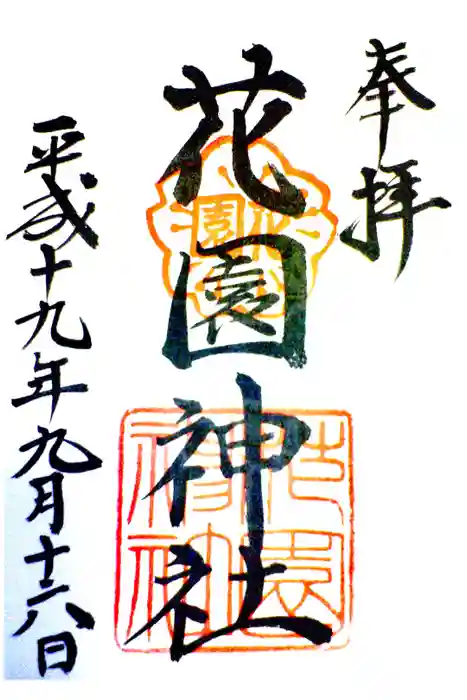 奉拝
花園神社
平成十九年九月十六日
花園
神社